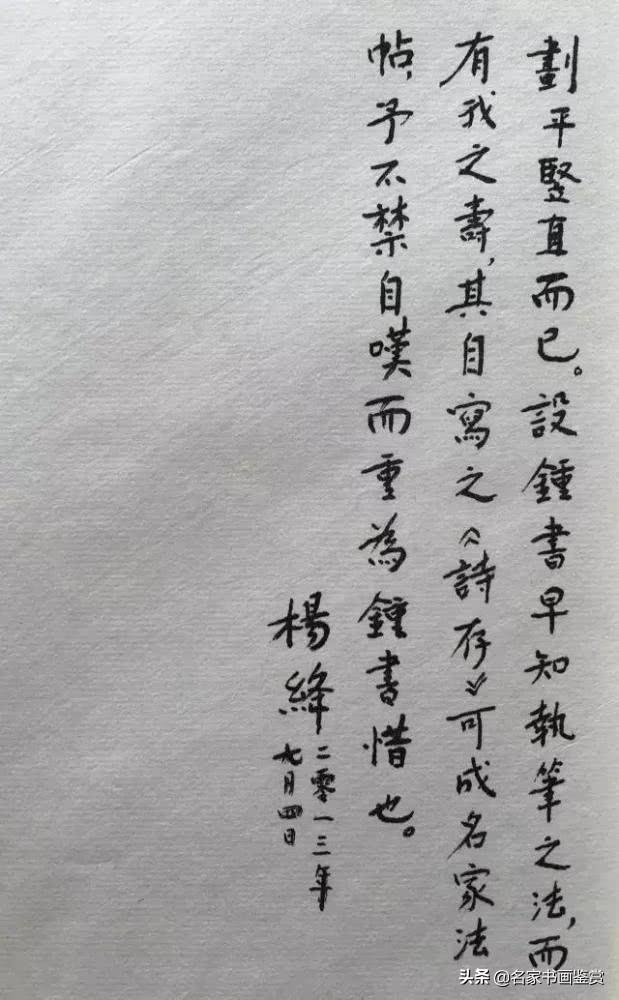 劃平竪直而已。設鍾書早知執筆之法,而
有我之壽,其自寫之《詩存》可成名家法
帖,予不禁自嘆而重為鍾書惜也。
楊絳
二零一三年
九月四日
头条 @名家书画鉴赏